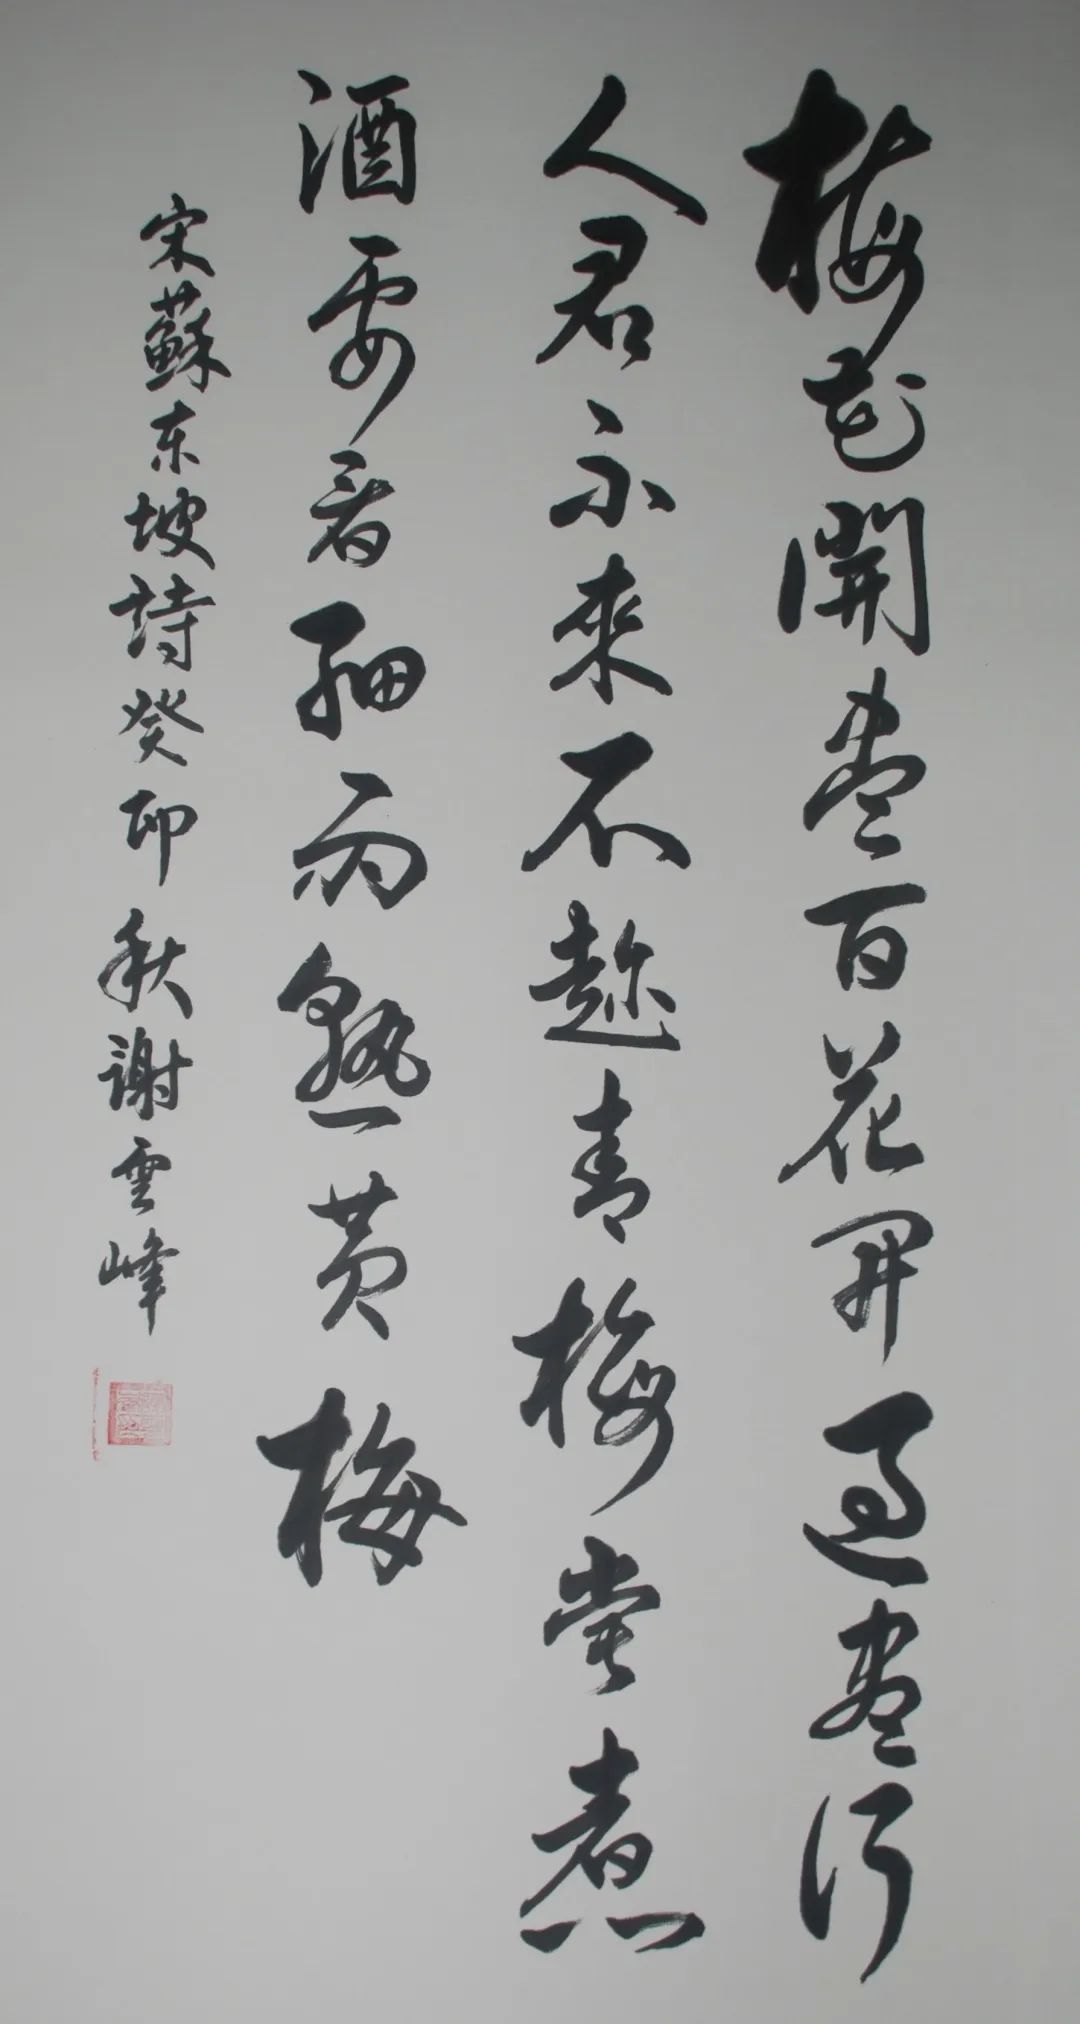 梅花開盡百花開過盡行
人君不來不趂青梅嘗煮
酒要看細雨熟黄梅
宋蘇东坡詩癸卯秋謝雲峰